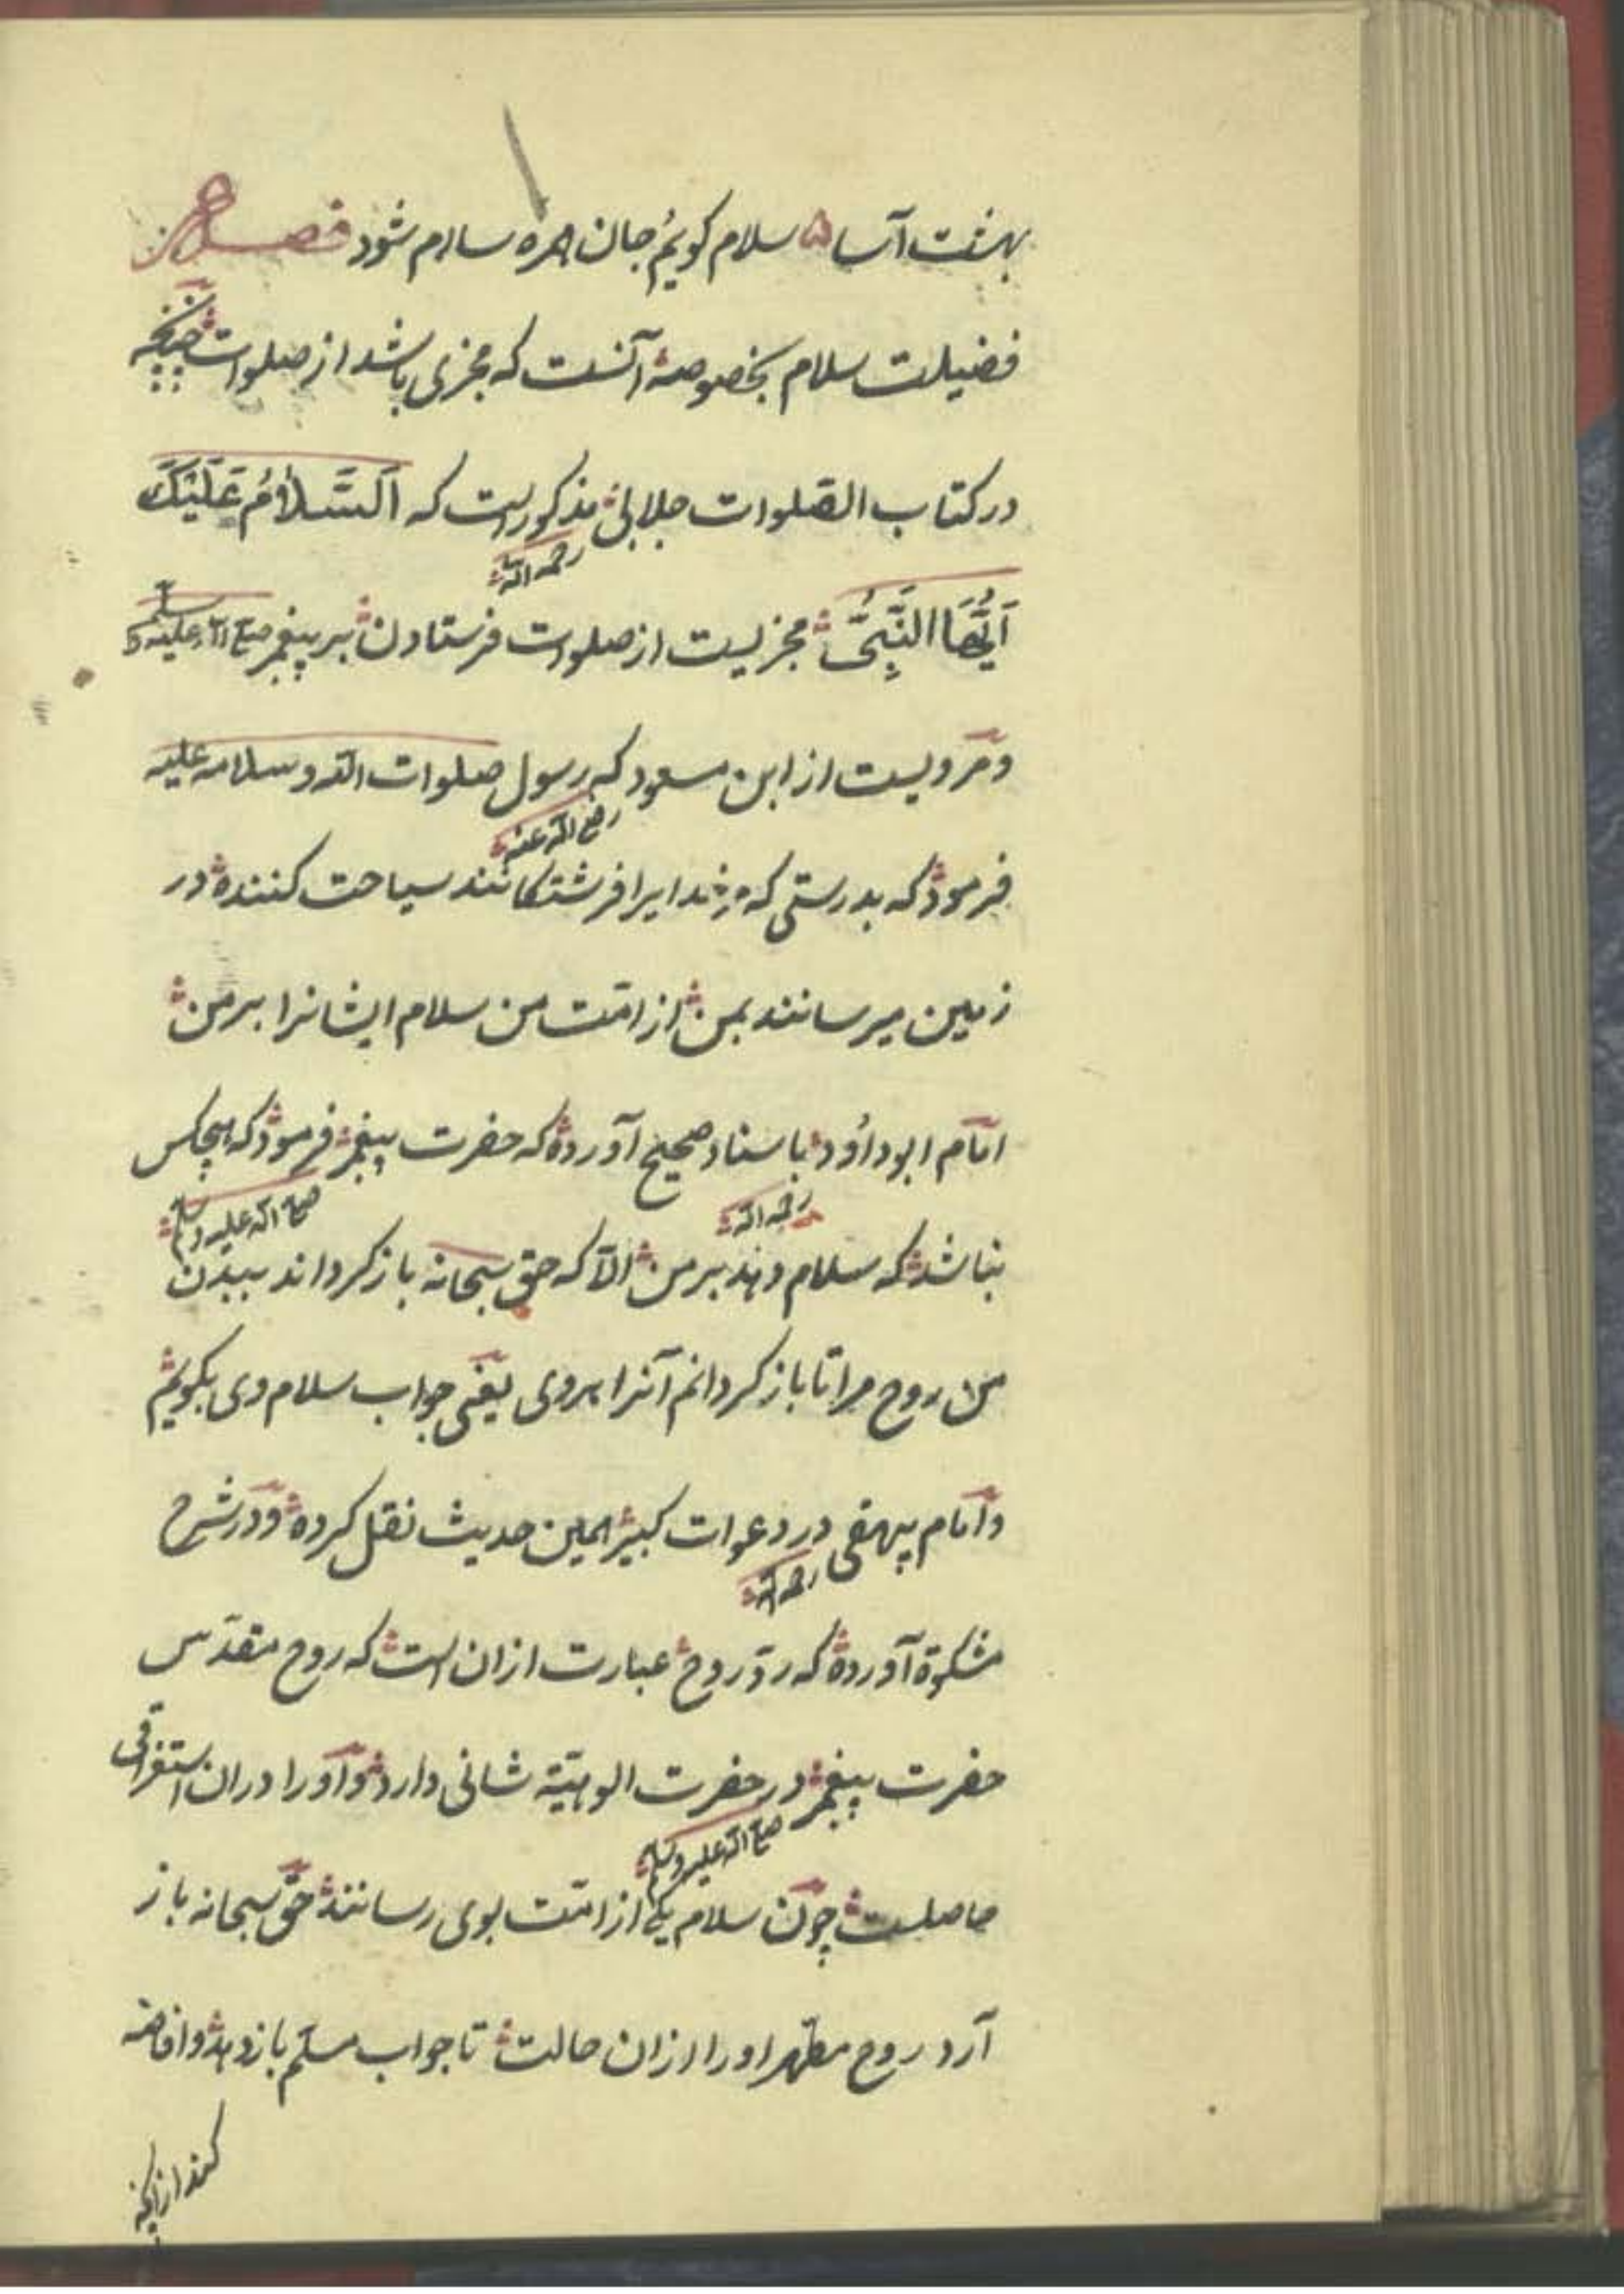 بهشت آسا ۵ سلام کویم جان همره سلام شود فصل
فضیلت سلام بخصوصه آنست که مجزی باشد از صلوات چنانچه
در کتاب الصلوات جلابی مذکور است که اَلسَّلَامُ عَلَیْكَ
رحمه الله
اَیُّهَا النَّبِیُّ مجزیست از صلوات فرستادن بر پیغمبر صلی الله علیه و سلم
و مرویست از ابن مسعود که رسول صلوات الله و سلامه علیه
رضی الله عنه
فرمود که بدرستی که مر خدایرا فرشتکانند سیاحت کننده در
زمین میرسانند بمن از امّت من سلام ایشانرا بر من
امام ابوداوُد باسناد صحیح آورده که حضرت پیغمبر فرمود که هیچکس
رحمه الله
صلی الله علیه وسلم
نباشد که سلام دهد بر من الّا که حق سبحانه باز کرداند ببدن
من روح مرا تا باز کردانم آنرا بروی یعنی جواب سلام وی بکویم
و امام بیهقی در دعوات کبیر همین حدیث نقل کرده و در شرح
رحمه الله
مشکوة آورده که ردّ روح عبارت ازان است که روح مقدّس
حضرت پیغمبر در حضرت الوهیّة شانی دارد و او را دران استغراقی
صلی الله علیه وسلم
حاصلست چون سلام یکی از امّت بوی رسانند حق سبحانه باز
آرد روح مطهر اورا ازان حالت تا جواب مسلّم باز دهد و افاضه
کند از آنچه